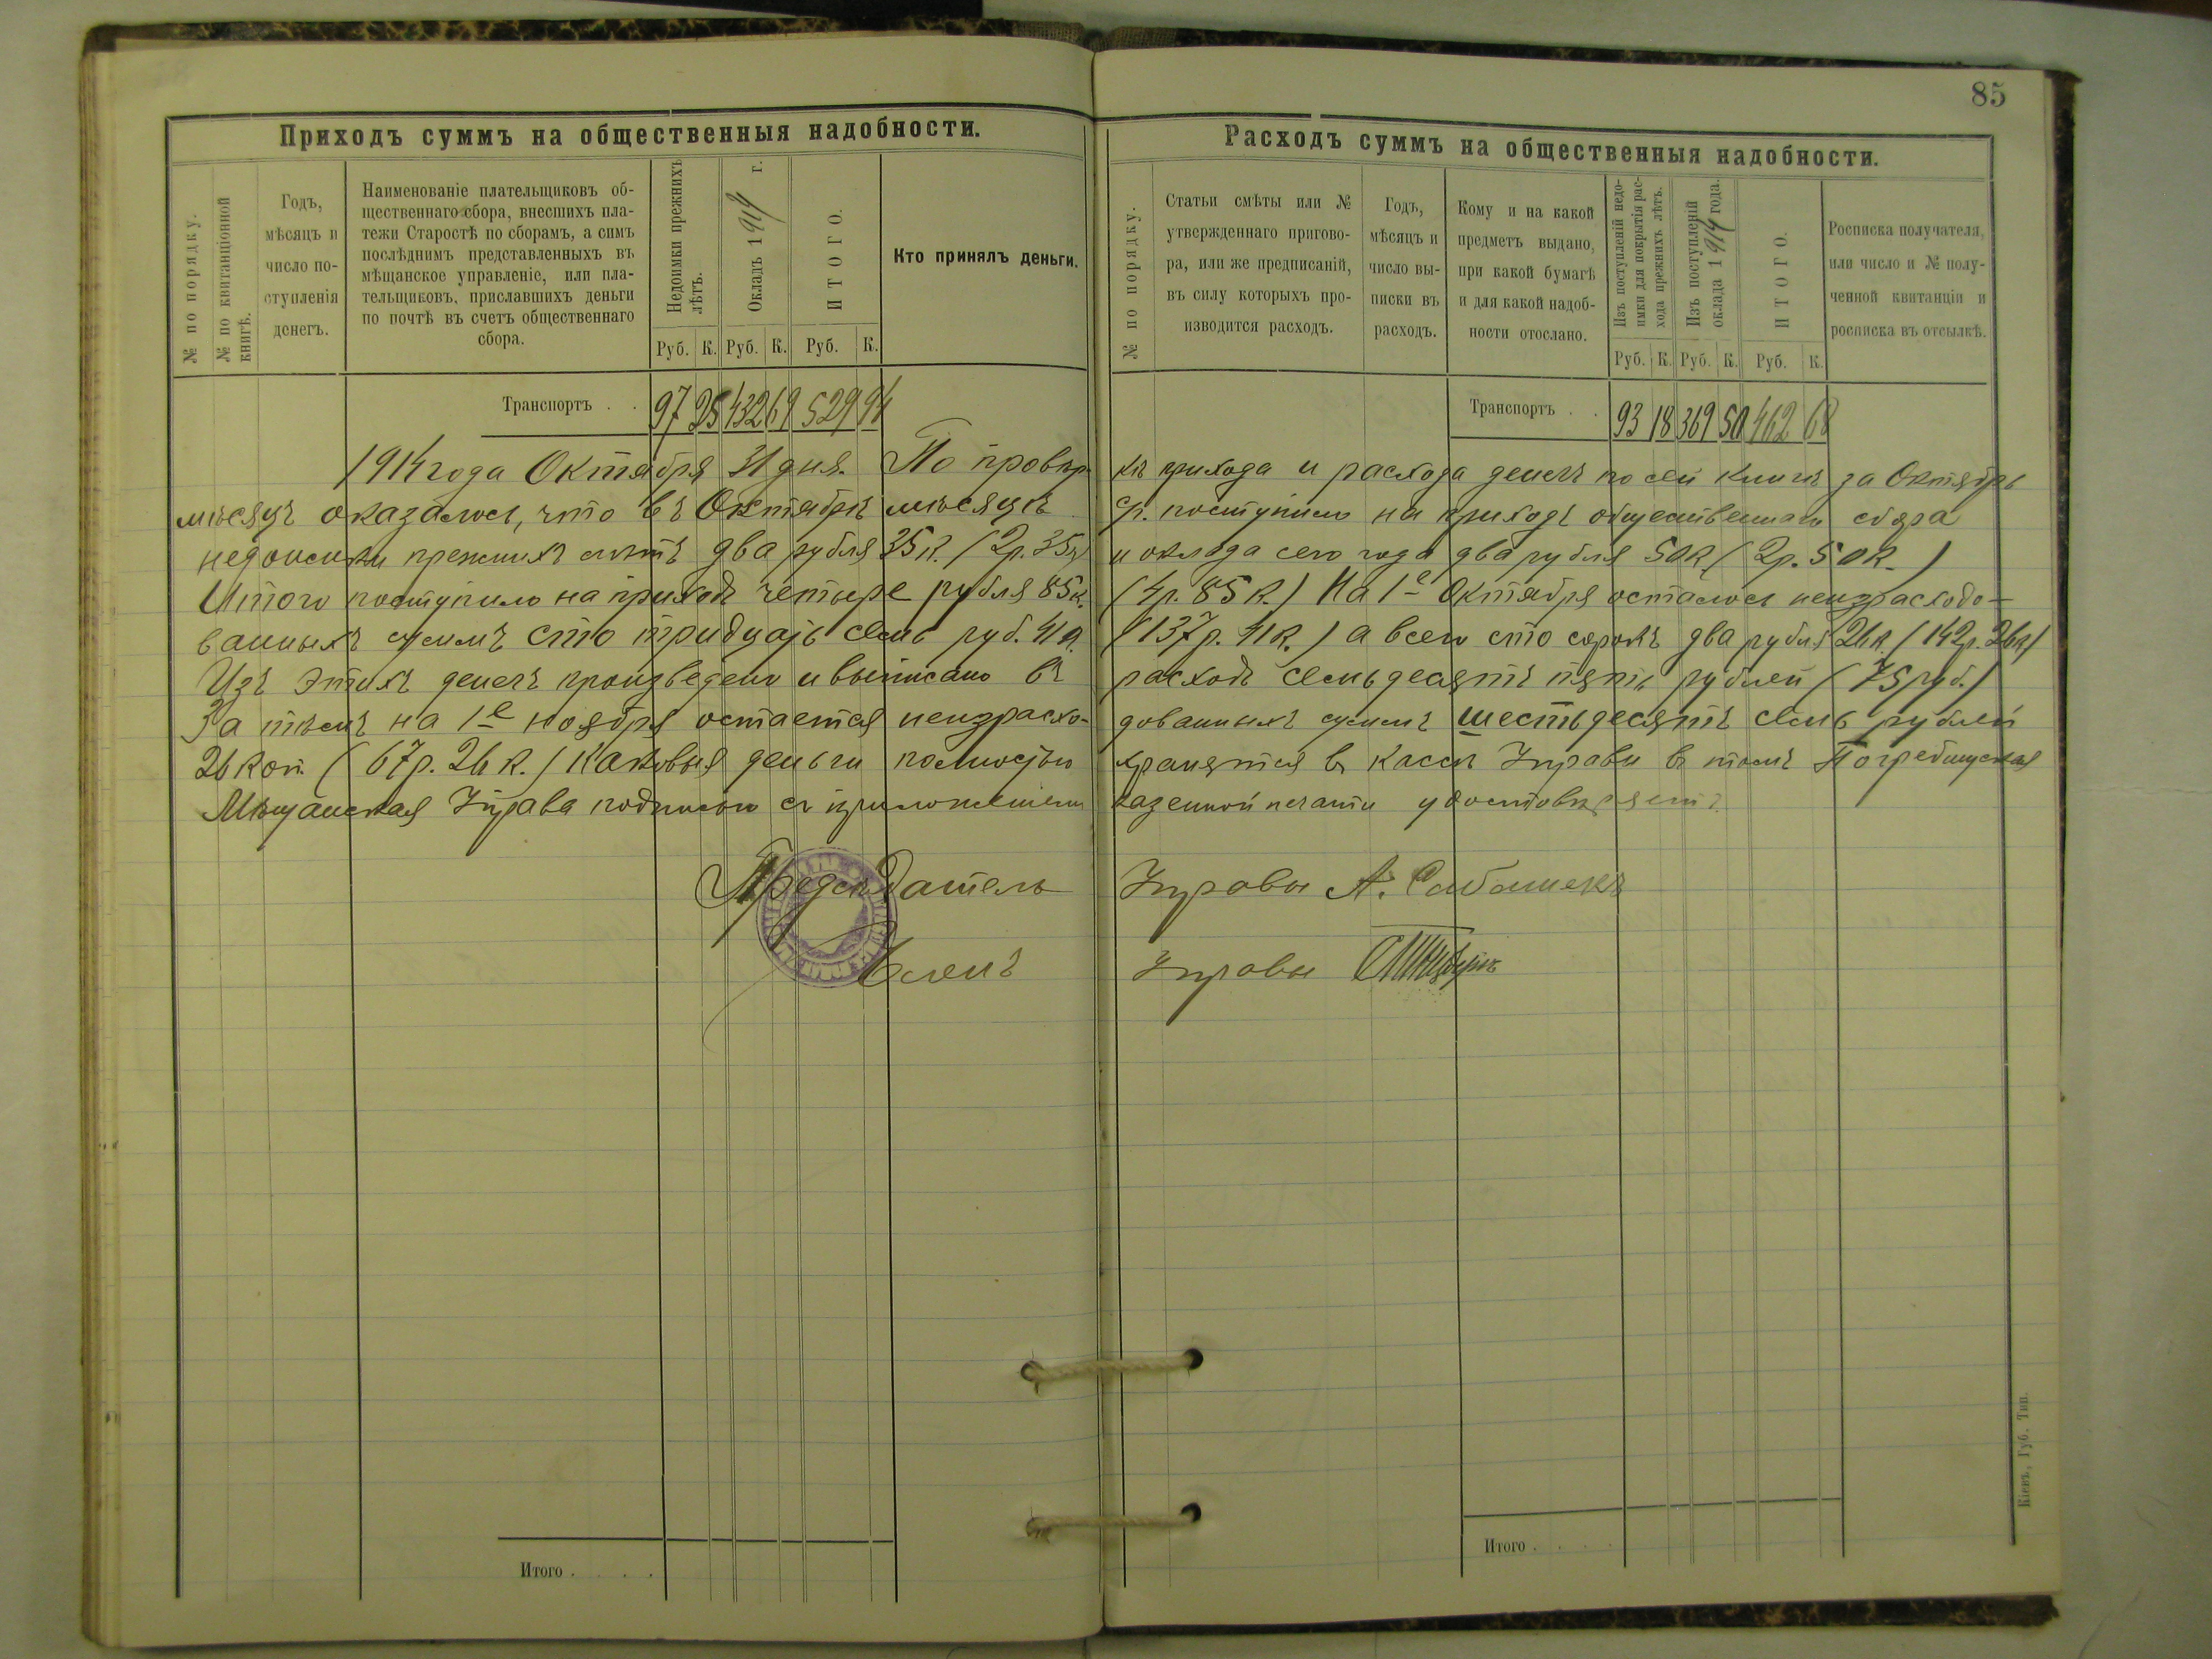 85
Приходъ суммъ на общественныя надобности.
№ по порядку.
№ по квитанціонной книгѣ.
Годъ,
мѣсяцъ и
число по-
ступленія
денегъ.
Наименованіе плательщиковъ об-
щественнаго сбора, внесшихъ пла-
тежи Старостѣ по сборамъ, а симъ
послѣднимъ представленныхъ въ
мѣщанское управленіе, или пла-
тельщиковъ, приславшихъ деньги
по почтѣ въ счетъ общественнаго
сбора.
Недоимки прежнихъ
лѣтъ.
Окладъ 1914 г.
ИТОГО.
Кто принялъ деньги.
Руб. К. Руб. К. Руб. К.
Транспортъ . . 97 25 432 69 529 94
Расходъ суммъ на общественныя надобности.
№ по порядку.
Статьи смѣты или №
утвержденнаго пригово-
ра, или же предписаній,
въ силу которыхъ про-
изводится расходъ.
Годъ,
мѣсяцъ и
число вы-
писки въ
расходъ.
Кому и на какой
предметъ выдано,
при какой бумагѣ
и для какой надоб-
ности отослано.
Изъ поступленій недо-
имки для покрытія рас-
хода прежнихъ лѣтъ.
Изъ поступленій
оклада 1914 года.
ИТОГО.
Росписка получателя,
или число и № полу-
ченной квитанціи и
росписка въ отсылкѣ.
Руб. К. Руб. К. Руб. К.
Транспортъ . . 93 18 369 50 462 68
1914 года Октября 31 дня. По провѣр кѣ прихода и расхода денегъ по сей книгѣ за Октябрь
мѣсяцъ оказалось, что въ Октябрѣ мѣсяцѣ с/г. поступило на приходъ общественнаго сбора
недоимки прежнихъ лѣтъ два рубля 35 к. (2 р. 35 к) и оклада сего года два рубля 50 к. (2 р. 50 к.)
Итого поступило на приходъ четыре рубля 85 к. (4 р. 85 к.) На 1е Октября осталось неизрасходо-
ванныхъ суммъ сто тридцать семь руб. 41 к. (137 р. 41 к.) а всего сто сорокъ два рубля 26 к. (142 р. 26 к)
Изъ этихъ денегъ произведено и выписано въ расходъ семьдесятъ пять рублей (75 руб.)
За тѣмъ на 1е ноября остается неизрасхо- дованныхъ суммъ шестьдесятъ семь рублей
26 коп. (67 р. 26 к.) каковыя деньги полностью хранятся въ кассѣ Управы въ томъ Погребищская
Мѣщанская Управа подписью съ приложеніемъ казенной печати удостовѣряетъ.
Предсѣдатель Управы А.
Членъ Управы
Итого . . . .
Итого . . . .
Кіевъ, Губ. Тип.